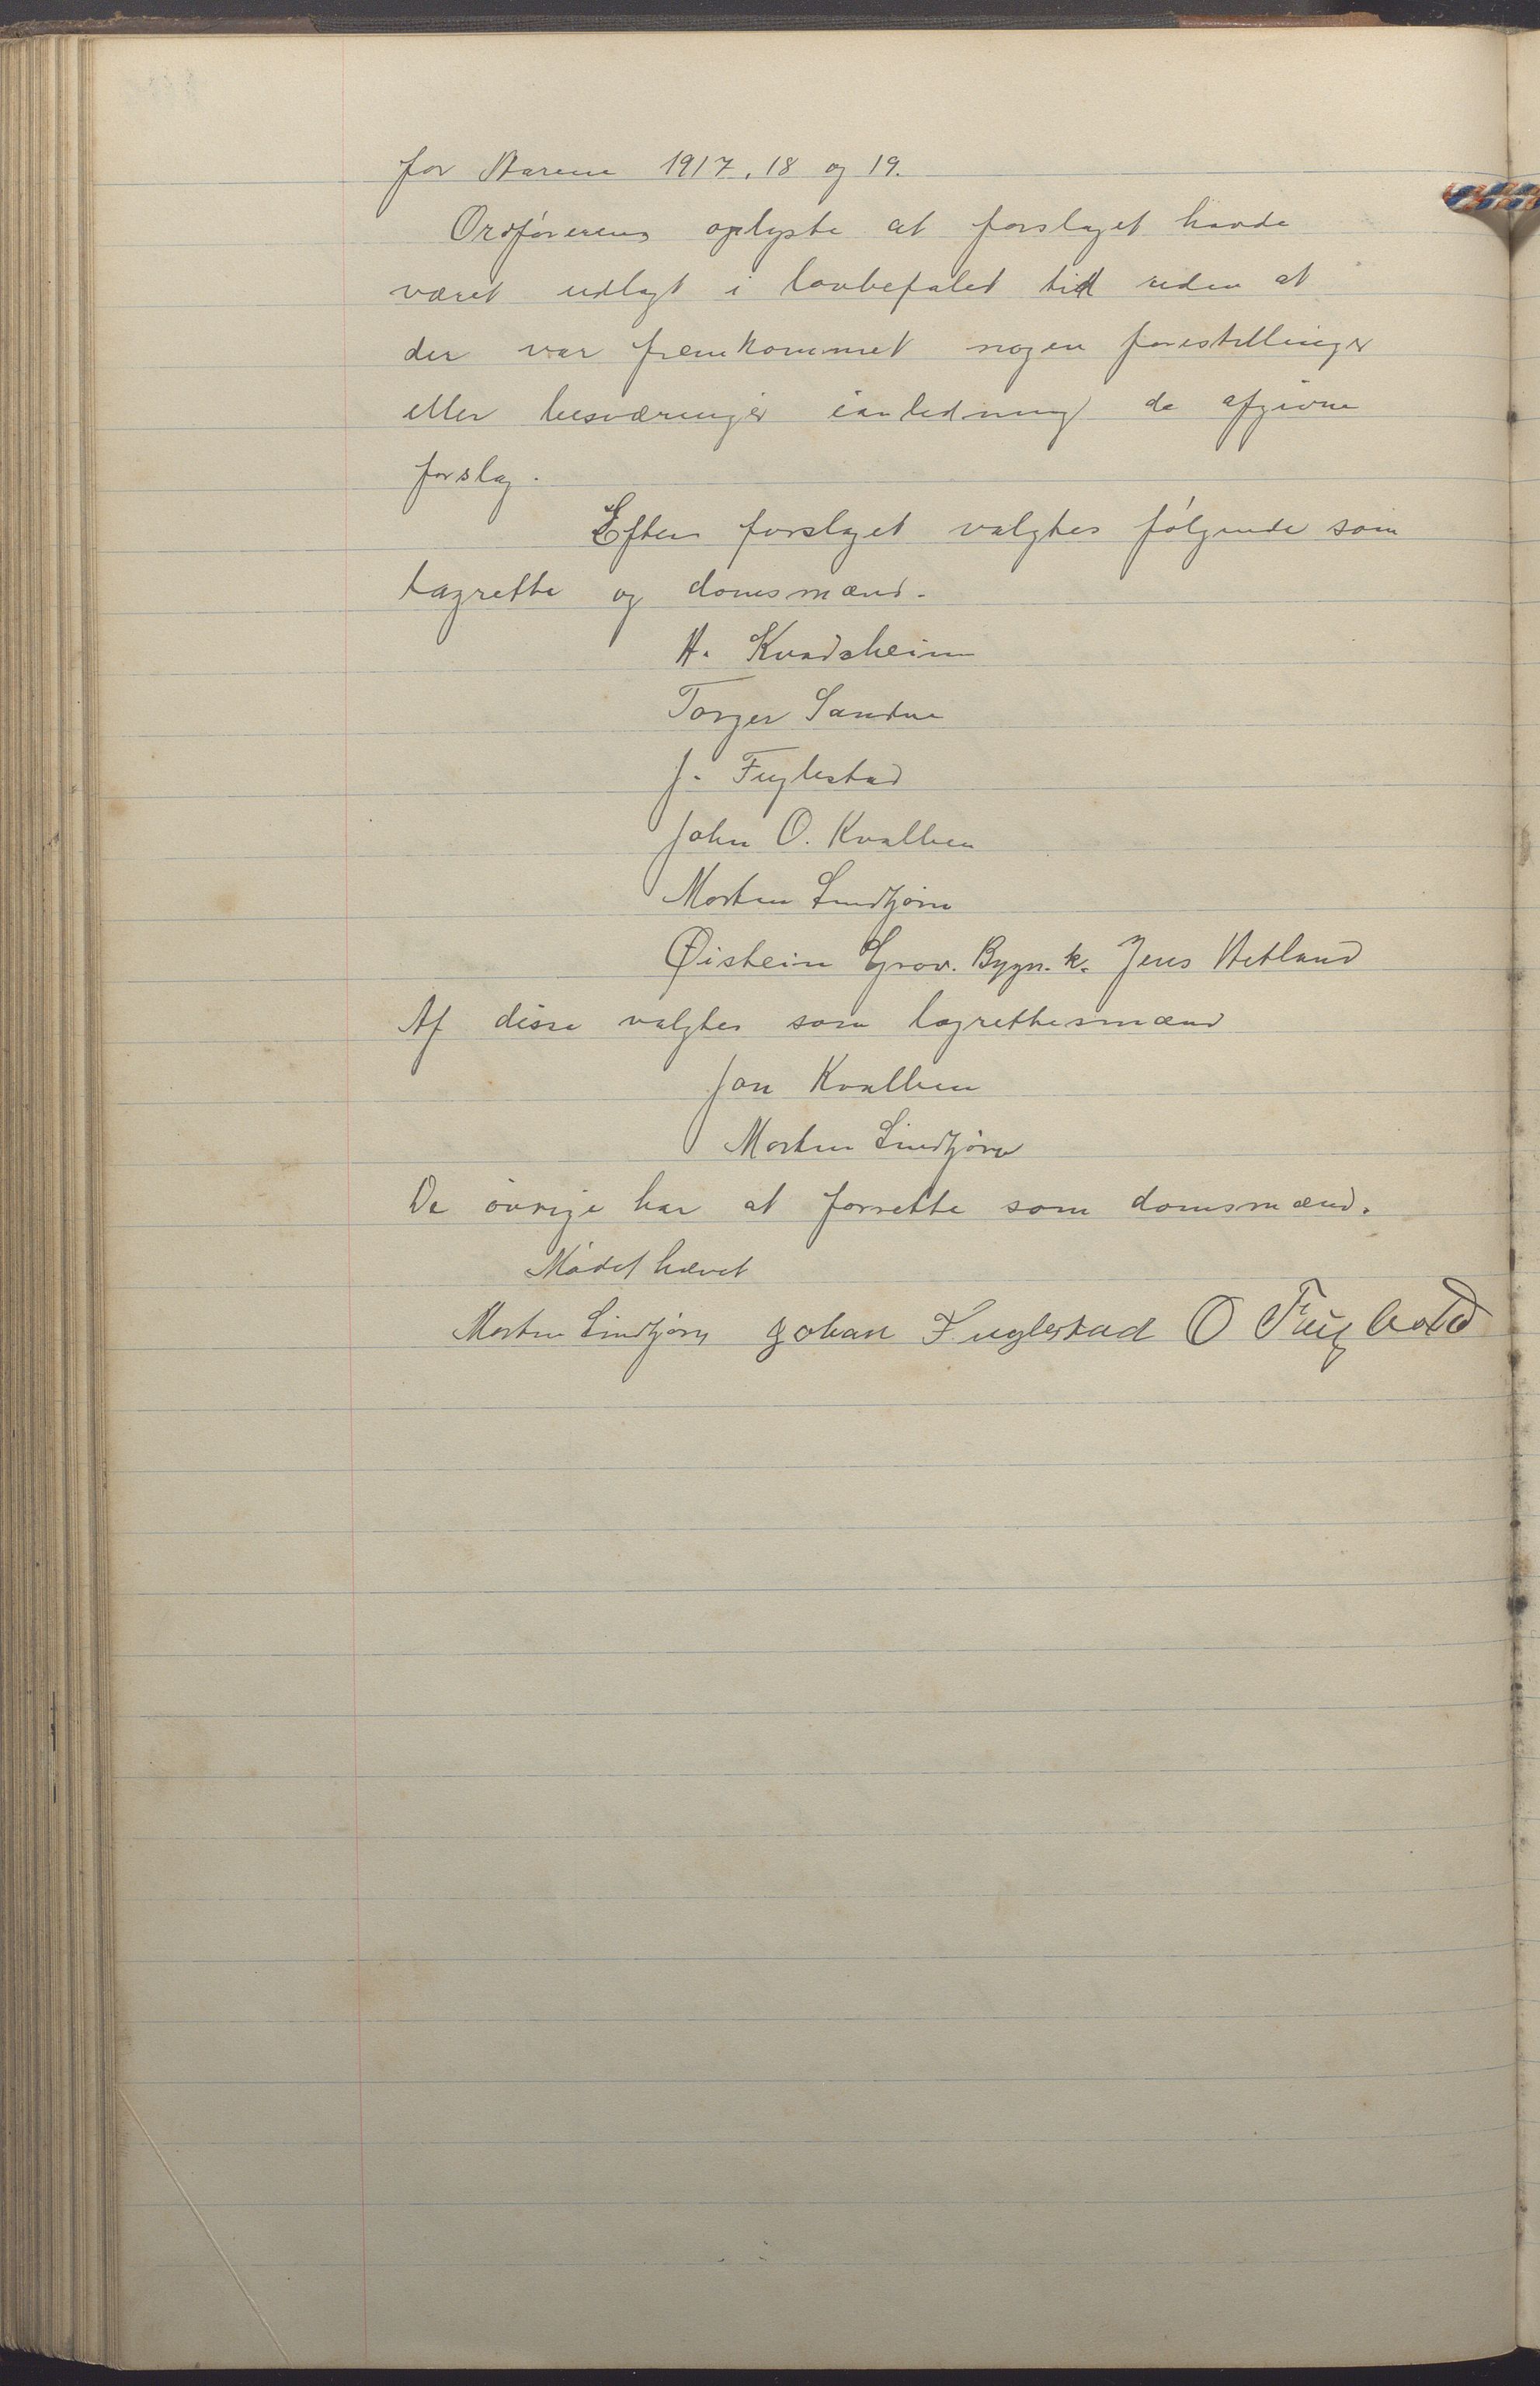 for Aarene 1917, 18 og 19.
Ordførerens oplyste at forslaget havde
været udlagt i lovbefalet tid uden at
der var fremkommet nogen forestillinger
eller besværinger ianledning de afgivne
forslag.
Efter forslaget valgtes følgende som
lagrette og domsmænd.
A. Kvadsheim
Torger Sandve
J. Fuglestad
John O. Kvalben
Morten Lindtjørn
Øistein Grov. Bygn. k. Jens Hetland
Af disse valgtes som lagrettesmænd
Jon Kvalben
Morten Lindtjørn
De øvrige har at forrette som domsmænd.
Mødet hævet
Morten Lindtjørn Johan Fuglestad O Fuglestad